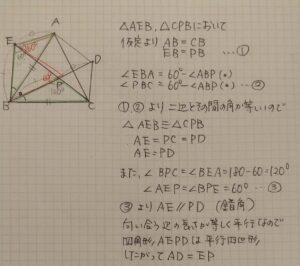 A
E
60°
60°
D
P
60°
B
C
△AEB, △CPBにおいて
仮定より AB = CB
EB = PB …①
∠EBA = 60° - ∠ABP (●)
∠PBC = 60° - ∠ABP (●) …②
①, ②より 二辺とその間の角が等しいので
△AEB ≡ △CPB
AE = PC = PD
AE = PD
また, ∠BPC = ∠BEA = 180 - 60 = 120°
∠AEP = ∠BPE = 60° …③
③より AE // PD (錯角)
向い合う辺の長さが等しく平行なので
四角形AEPDは平行四辺形
したがって AD = EP